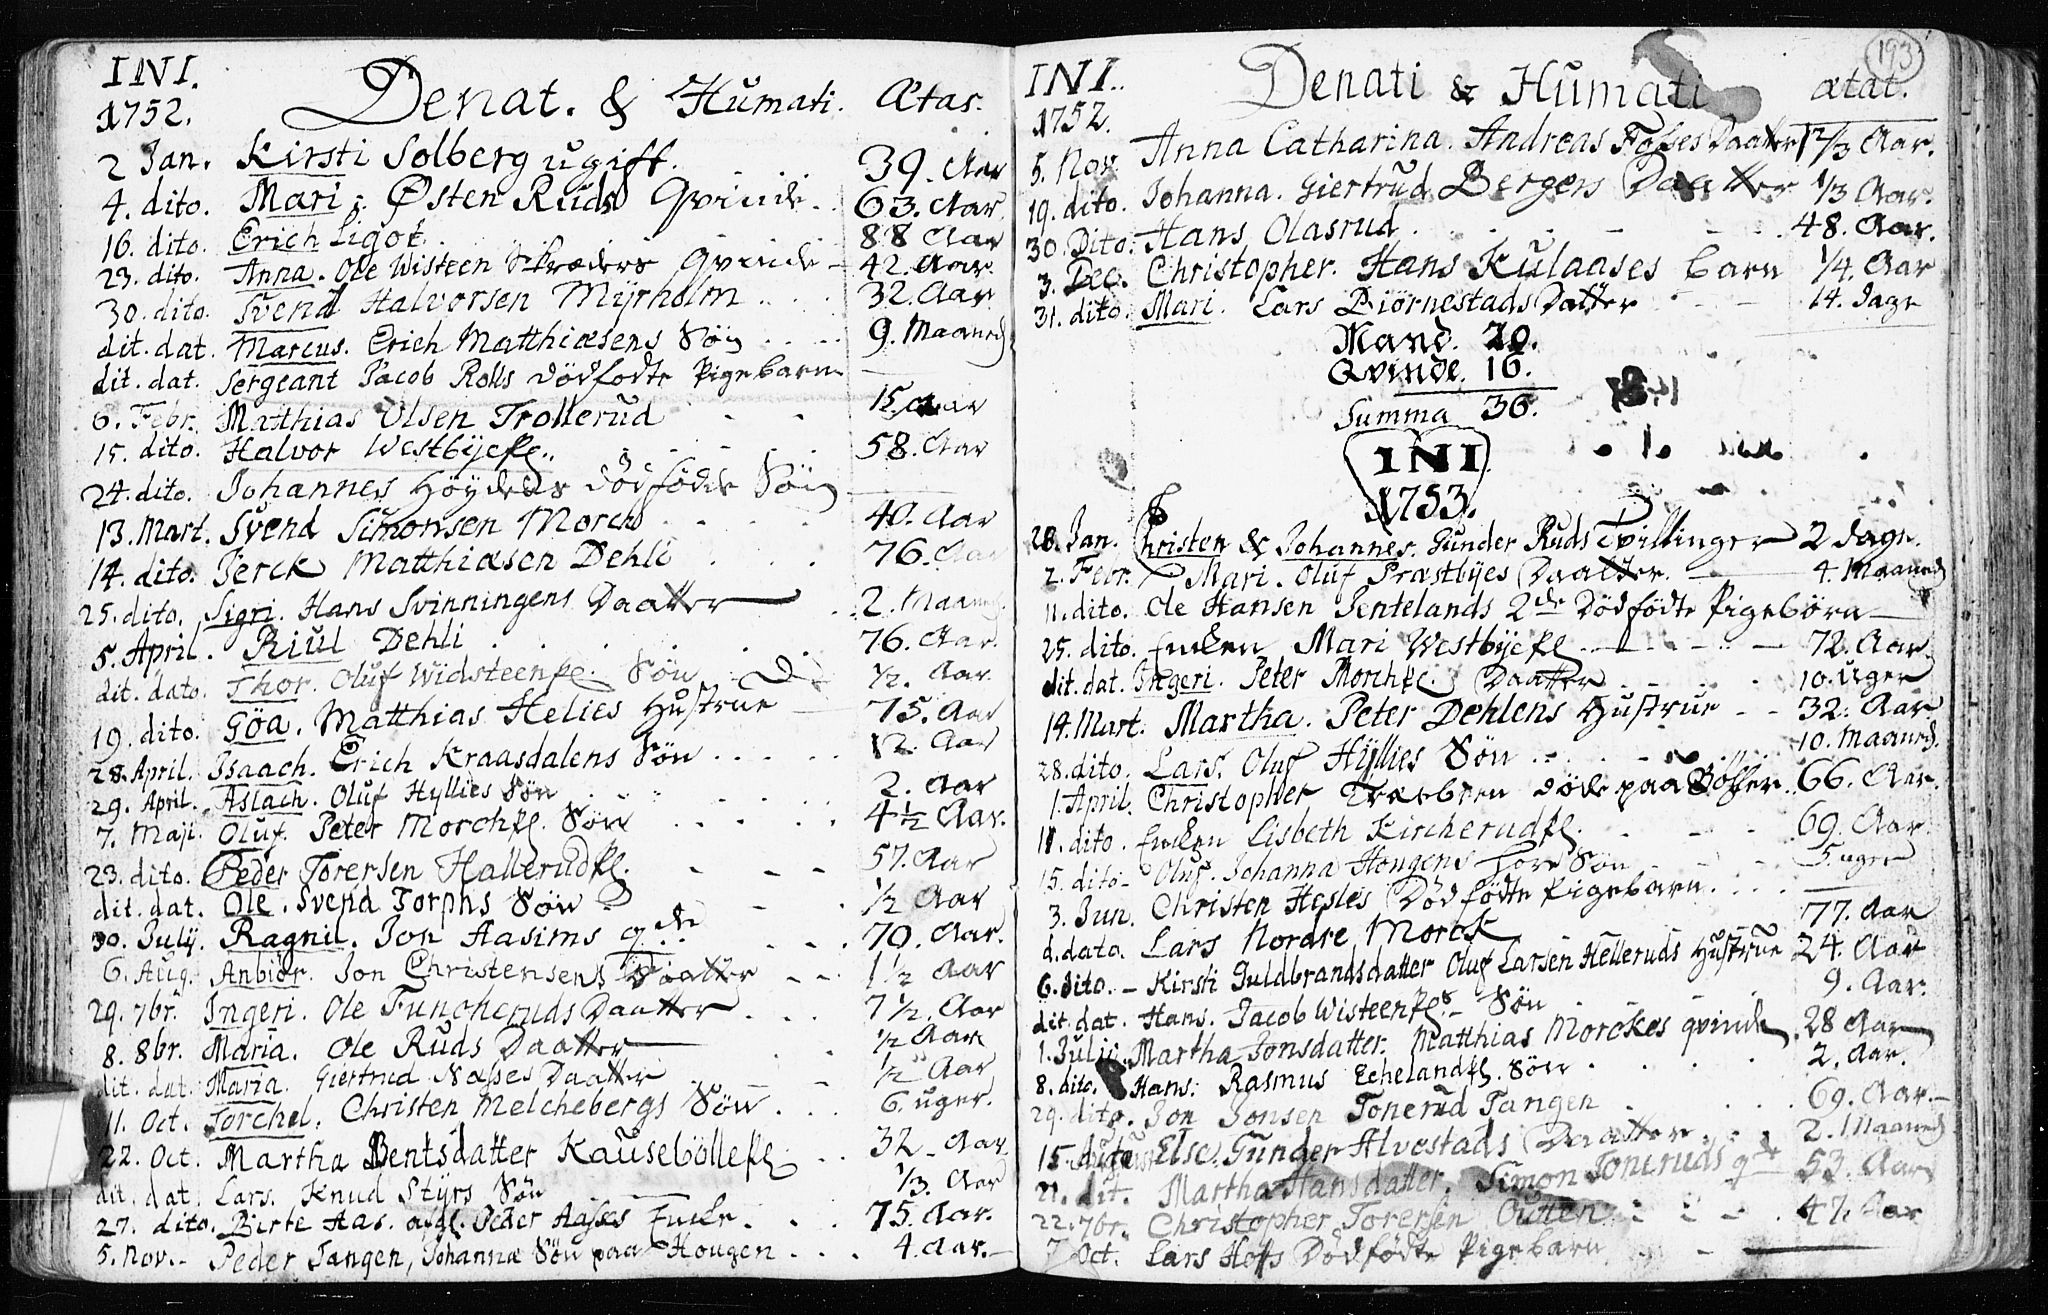 INI.
1752. Denat. & Humati. Ætas.
2 Jan. Kirsti Solberg ugift. 39. Aar
4. dito. Mari. Østen Ruds Qvinde. 63. Aar.
16. dito. Erich Ligot. 88 Aar
23. dito. Anna. Ole Wisteen Skræders Qvinde 42. Aar.
30. dito. Svend Halvorsen Myrholm 32. Aar
dit. dat. Marcus. Erich Matthiæsens Søn 9. Maaned
dit. dat. Sergeant Jacob Rolls dödfodte Pigebarn
6. Febr. Matthias Olsen Trollerud 15. Aar
15. dito. Halvor Westbye 58. Aar
24. dito. Johannes Höydens dödfödde Sön
13. Mart. Svend Simonsen Morch 40. Aar
14. dito. Jerck Matthiæsen Dehli 76. Aar
25. dito. Sigri. Hans Svinningens Daatter 2. Maaned.
5. April. Riul Dehli 76. Aar.
dit. dato. Thor. Oluf Widsteen Sön ½. Aar.
19. dito. Göa. Matthias Helies Hustrue 75. Aar
28. April. Isaach. Erich Kraasdalens Sön 12. Aar
29. April. Aslach. Oluf Hyllies Sön 2. Aar
7. Maji. Oluf. Peter Morch Sön 4½ Aar.
23. dito. Peder Torersen Hallerud 57. Aar
dit. dat. Ole. Svend Torphs Sön ½ Aar
30. Julij. Ragnil. Jon Aasims qde 70. Aar.
6. Aug. Anbiör. Jon Christensens Daatter 1½ Aar
29. 7br. Ingeri. Ole Funcheruds Daatter 7½. Aar
8. 8br. Maria. Ole Ruds Daatter ½ Aar
dit. dat. Maria. Giertrud Næsses Daatter ½ Aar
11. Oct. Torchel. Christen Melchebergs Sön 6. uger.
22. Oct. Martha Bentsdatter Kausebölle 32. Aar.
dit. dat. Lars. Knud Styrs Sön ⅓. Aar
27. dito. Birte Aas. afgl. Peder Aasses Encke. 75. Aar.
5. Nov. Peder Tangen, Johannæ Sön paa Hougen 4. Aar.
193
INI.
1752. Denati & Humati ætat.
5. Nov. Anna Catharina. Andreas Fosses Daatter 1 2/3 Aar.
19. dito. Johanna. Giertrud Bergers Daatter 1/3 Aar.
30. Dito. Hans Olasrud 48. Aar.
3. Dec. Christopher. Hans Kulaases barn ¼. Aar
31. dito. Mari. Lars Biörnestads Datter 14. dage
Mand. 20.
Qvinde. 16.
Summa 36.
INI
1753.
28. Jan. Christen & Johannes. Gunder Ruds Tvillinger 2 dage.
2. Febr. Mari. Oluf Præstbyes Daatter. 4. Maaned
11. dito. Ole Hansen Jentelands 2de Dödfödte Pigebörn
25. dito. Encken Mari Westbye 72. Aar.
dit. dat. Ingeri. Peter Morch Daatter 10. uger
14. Mart. Martha. Peter Dehlens Hustrue 32. Aar
28. dito. Lars. Oluf Hyllies Sön 10. Maaned.
1. April. Christopher Træebeen döde paa Böffer 66. Aar.
11. dito. Encken Lisbeth Kircherud 69. Aar
15. dito. Oluf. Johanna Hougens Hore Sön 5. uger
3. Jun. Christen Hesles Dödfödte Pigebarn.
d. dato. Lars Nordre Morck 77. Aar
6. dito. Kirsti Guldbrandsdatter Oluf Larsen Helleruds Hustrue 24. Aar
dit. dat. Hans. Jacob Wisteen Sön 9. Aar.
1. Julij. Martha Jonsdatter. Matthias Morckes qvinde 28 Aar
8. dito. Hans. Rasmus Echeland Sön 2. Aar.
29. dito. Jon Jonsen Tonerud Tangen 69. Aar.
15. August Else. Gunder Alvestads Daatter 2. Maaned
21. dit. Martha Hansdatter. Simon Toneruds qde 53. Aar
22. 7br. Christopher Torersen Outen 47. Aar
7 Oct. Lars Hoffs Dödfödte Pigebarn